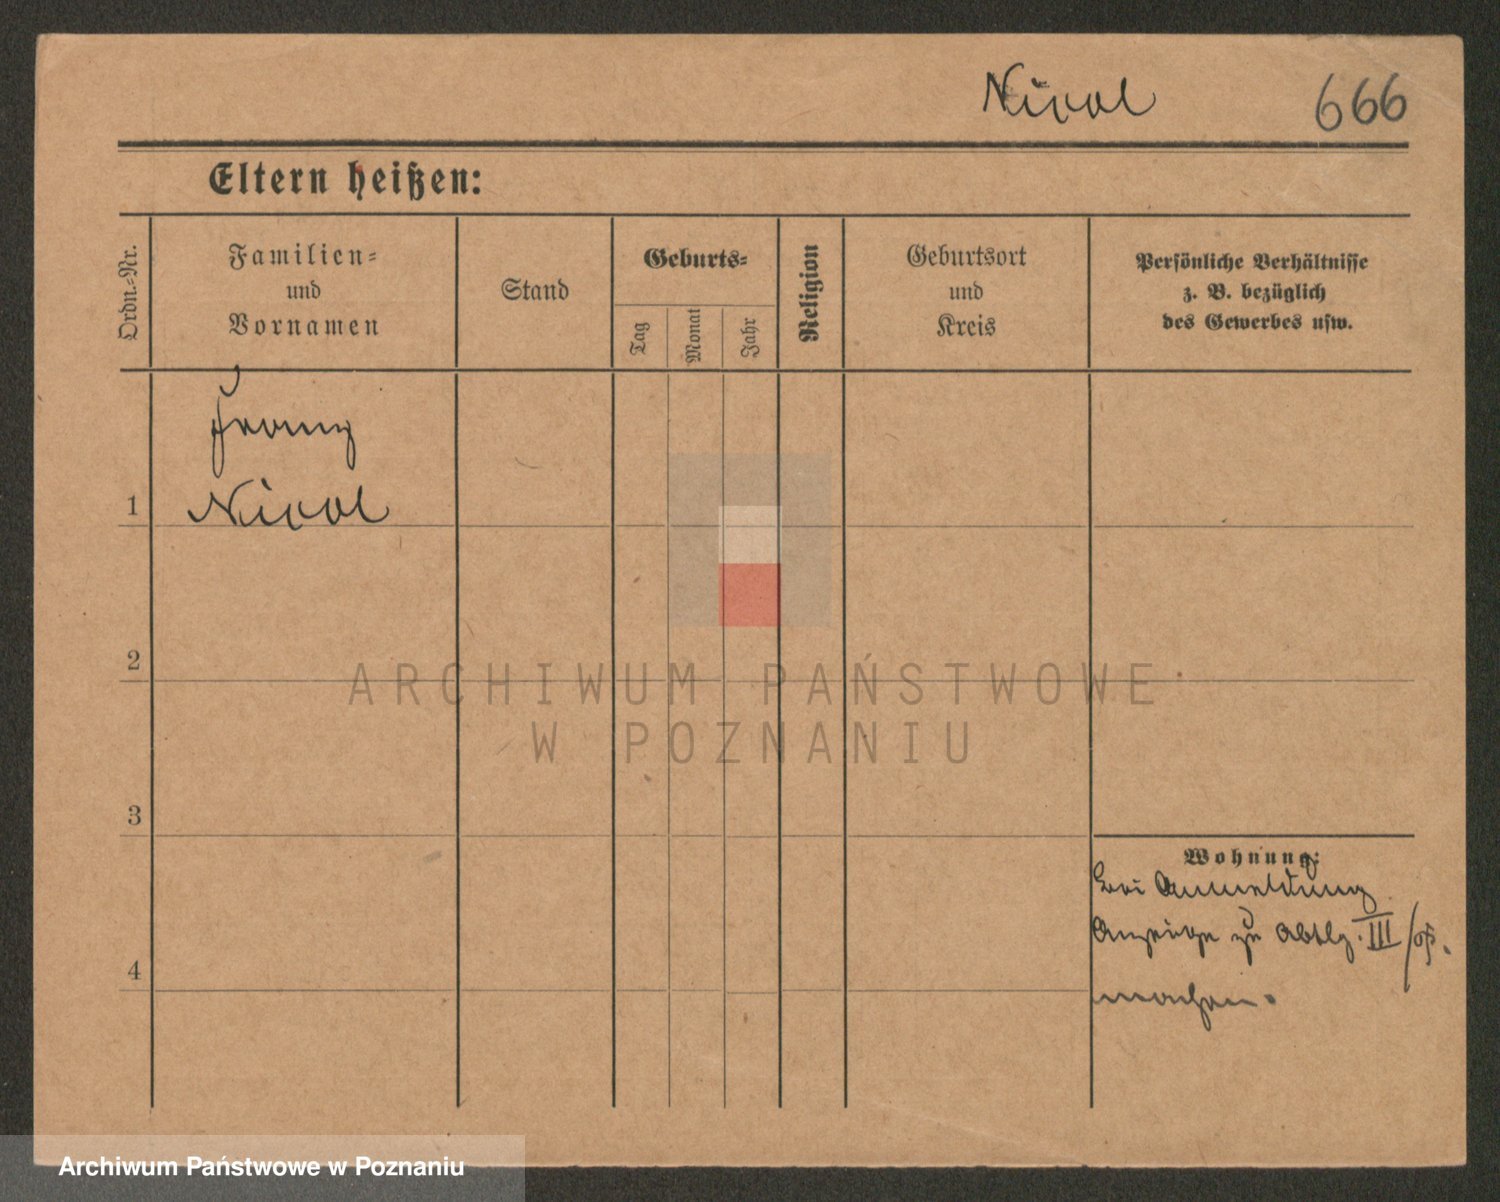 Nicol 666
Eltern heißen:
Ordn.-Nr.
Familien-
und
Vornamen
Stand
Geburts-
Tag
Monat
Jahr
Religion
Geburtsort
und
Kreis
Persönliche Verhältnisse
z. B. bezüglich
des Gewerbes usw.
Franz
1 Nicol
2
3
4
Wohnung:
bei Anmeldung
Anzeige zu Abtlg. III
machen.
ARCHIWUM PAŃSTWOWE
W POZNANIU
Archiwum Państwowe w Poznaniu